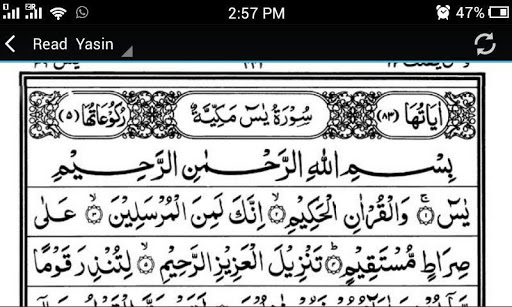 2:57 PM 47%
Read Yasin
اٰيَاتُهَا (٨٣) سُوْرَةُ يٰسٓ مَكِّيَّةٌ رُكُوْعَاتُهَا (٥)
بِسْمِ اللّٰهِ الرَّحْمٰنِ الرَّحِيْمِ
يٰسٓ ۚ‏﴿١﴾ وَالْقُرْاٰنِ الْحَكِيْمِ ۙ‏﴿٢﴾ اِنَّكَ لَمِنَ الْمُرْسَلِيْنَ ۙ‏﴿٣﴾ عَلٰى
صِرَاطٍ مُّسْتَقِيْمٍ ؕ‏﴿٤﴾ تَنْزِيْلَ الْعَزِيْزِ الرَّحِيْمِ ۙ‏﴿٥﴾ لِتُنْذِرَ قَوْمًا